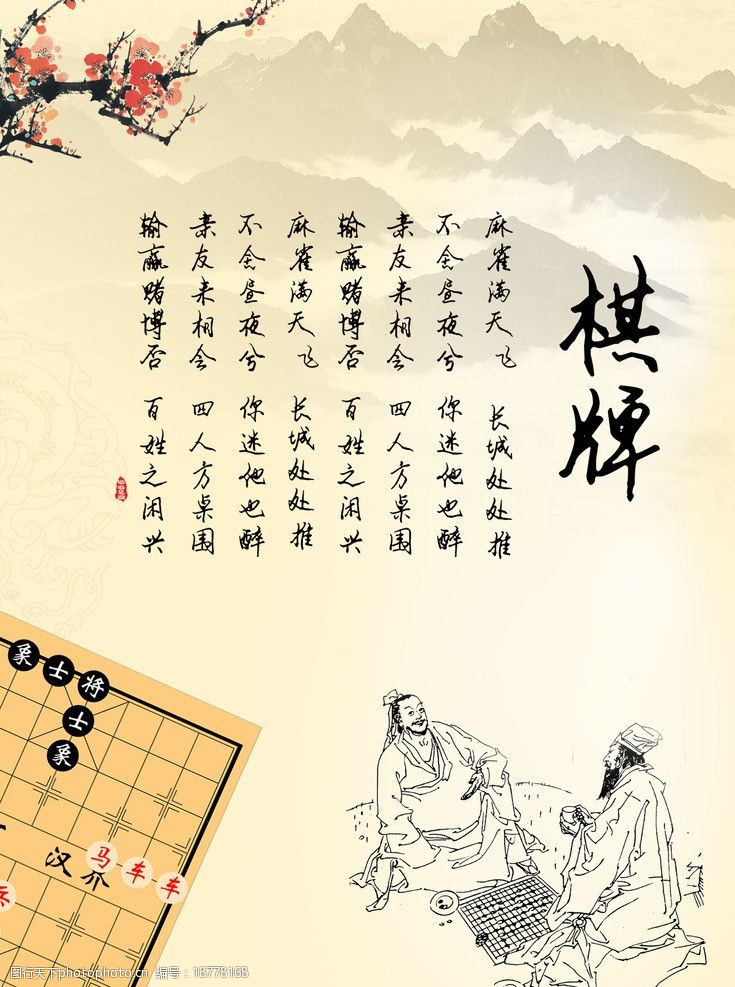 棋牌
麻雀满天飞 长城处处推
不舍昼夜兮 你迷他也醉
亲友来相会 四人方桌围
输赢赌博否 百姓之闲兴
麻雀满天飞 长城处处推
不舍昼夜兮 你迷他也醉
亲友来相会 四人方桌围
输赢赌博否 百姓之闲兴
象 士 将
士
象
汉 界
马 车 车
图行天下photophoto.cn 编号:18778168